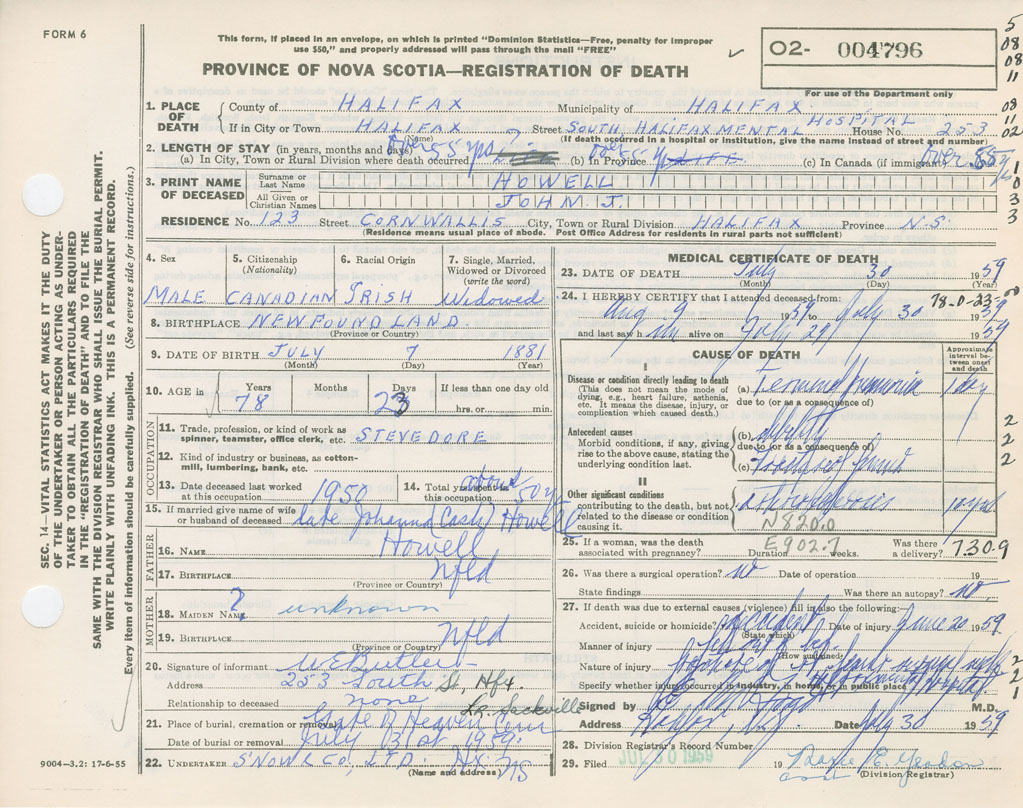 FORM 6
This form, if placed in an envelope, on which is printed "Dominion Statistics—Free, penalty for improper
use $50," and properly addressed will pass through the mail "FREE"
PROVINCE OF NOVA SCOTIA—REGISTRATION OF DEATH
O2- 004796
For use of the Department only
5
08
08
11
08
11
02
1. PLACE OF DEATH County of HALIFAX Municipality of HALIFAX
HOSPITAL
If in City or Town HALIFAX Street SOUTH HALIFAX MENTAL House No. 253
(Name) (If death occurred in hospital or institution, give the name instead of street and number)
2. LENGTH OF STAY (in years, months and days)
(a) In City, Town or Rural Division where death occurred (b) In Province (c) In Canada (if immigrant) over
3. PRINT NAME OF DECEASED
Surname or Last Name HOWELL
All Given or Christian Names JOHN J.
1
0
3
3
RESIDENCE No. 123 Street CORNWALLIS City, Town or Rural Division HALIFAX Province N.S.
(Residence means usual place of abode. Post Office Address for residents in rural parts not sufficient)
4. Sex 5. Citizenship (Nationality) 6. Racial Origin 7. Single, Married, Widowed or Divorced (write the word)
MALE CANADIAN IRISH Widowed
8. BIRTHPLACE NEWFOUNDLAND
(Province or Country)
9. DATE OF BIRTH JULY 7 1881
(Month) (Day) (Year)
10. AGE in Years Months Days If less than one day old
78 23 hrs. or min.
OCCUPATION
11. Trade, profession, or kind of work as spinner, teamster, office clerk, etc. STEVEDORE
12. Kind of industry or business, as cotton-mill, lumbering, bank, etc.
13. Date deceased last worked at this occupation 1950
14. Total yrs. spent in this occupation about 50 yrs
15. If married give name of wife or husband of deceased Late Johanna (Cash) Howell
FATHER
16. NAME Howell
17. BIRTHPLACE Nfld
(Province or Country)
MOTHER
18. MAIDEN NAME ? unknown
19. BIRTHPLACE Nfld
(Province or Country)
20. Signature of informant W E Butler
Address 253 South St, Hfx.
Relationship to deceased none
Lr. Sackville
21. Place of burial, cremation or removal Gate of Heaven Cem
Date of burial or removal July 31st 1959.
22. UNDERTAKER SNOW & CO, LTD. HX. NS
(Name and address)
MEDICAL CERTIFICATE OF DEATH
23. DATE OF DEATH July 30 1959
(Month) (Day) (Year)
78-0-23-
24. I HEREBY CERTIFY that I attended deceased from:
Aug 9 to July 30 1959
and last saw him alive on July 29 1959
CAUSE OF DEATH
Approximate interval between onset and death
I
Disease or condition directly leading to death
(This does not mean the mode of dying, e.g., heart failure, asthenia, etc. It means the disease, injury, or complication which caused death.)
(a) Terminal pneumonia 1 day
due to (or as a consequence of)
Antecedent causes
Morbid conditions, if any, giving rise to the above cause, stating the underlying condition last.
(b) debility
due to (or as a consequence of)
(c) Fracture of femur
2
2
2
II
Other significant conditions
contributing to the death, but not related to the disease or condition causing it.
arteriosclerosis 10 yrs
N820.0
25. If a woman, was the death associated with pregnancy? E902.7 Duration weeks. Was there a delivery? 730.9
26. Was there a surgical operation? no Date of operation 19
State findings Was there an autopsy? no.
27. If death was due to external causes (violence) fill in also the following:—
Accident, suicide or homicide? accident Date of injury June 20 1959
(State which)
Manner of injury fell out of bed
(How sustained)
Nature of injury
Specify whether injury occurred in industry, in home, or in public place
2
2
1
Signed by M.D.
Address Date July 30 1959
28. Division Registrar's Record Number
29. Filed JUL 30 1959 19
(Division Registrar)
SEC. 14—VITAL STATISTICS ACT MAKES IT THE DUTY
OF THE UNDERTAKER OR PERSON ACTING AS UNDER-
TAKER TO OBTAIN ALL THE PARTICULARS REQUIRED
IN THE "REGISTRATION OF DEATH" AND TO FILE THE
SAME WITH THE DIVISION REGISTRAR WHO SHALL ISSUE THE BURIAL PERMIT.
WRITE PLAINLY WITH UNFADING INK. THIS IS A PERMANENT RECORD.
Every item of information should be carefully supplied. (See reverse side for instructions.)
9004-3.2: 17-6-55